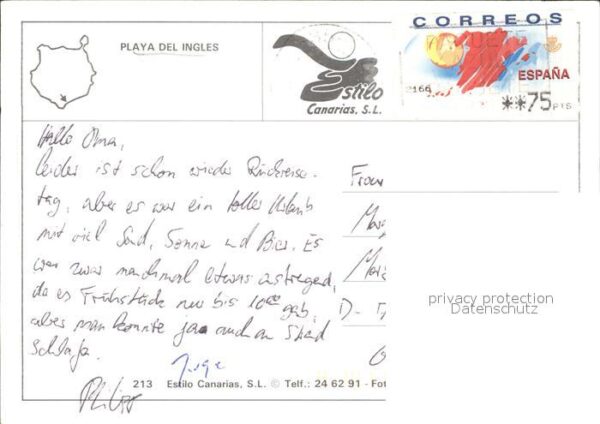 PLAYA DEL INGLES
Estilo
Canarias, S.L.
CORREOS
ESPAÑA
2166
**75 PTS
Hallo Oma,
leider ist schon wieder Rückreise-
tag, aber es war ein toller Urlaub
mit viel Sand, Sonne und Bier. Es
war zwar manchmal etwas anstregend,
da es Frühstück nur bis 10 gab,
aber man konnte ja auch am Strand
schlafe.
Philipp
Frau
D-
privacy protection
Datenschutz
213 Estilo Canarias, S.L. © Telf.: 24 62 91 - Fot